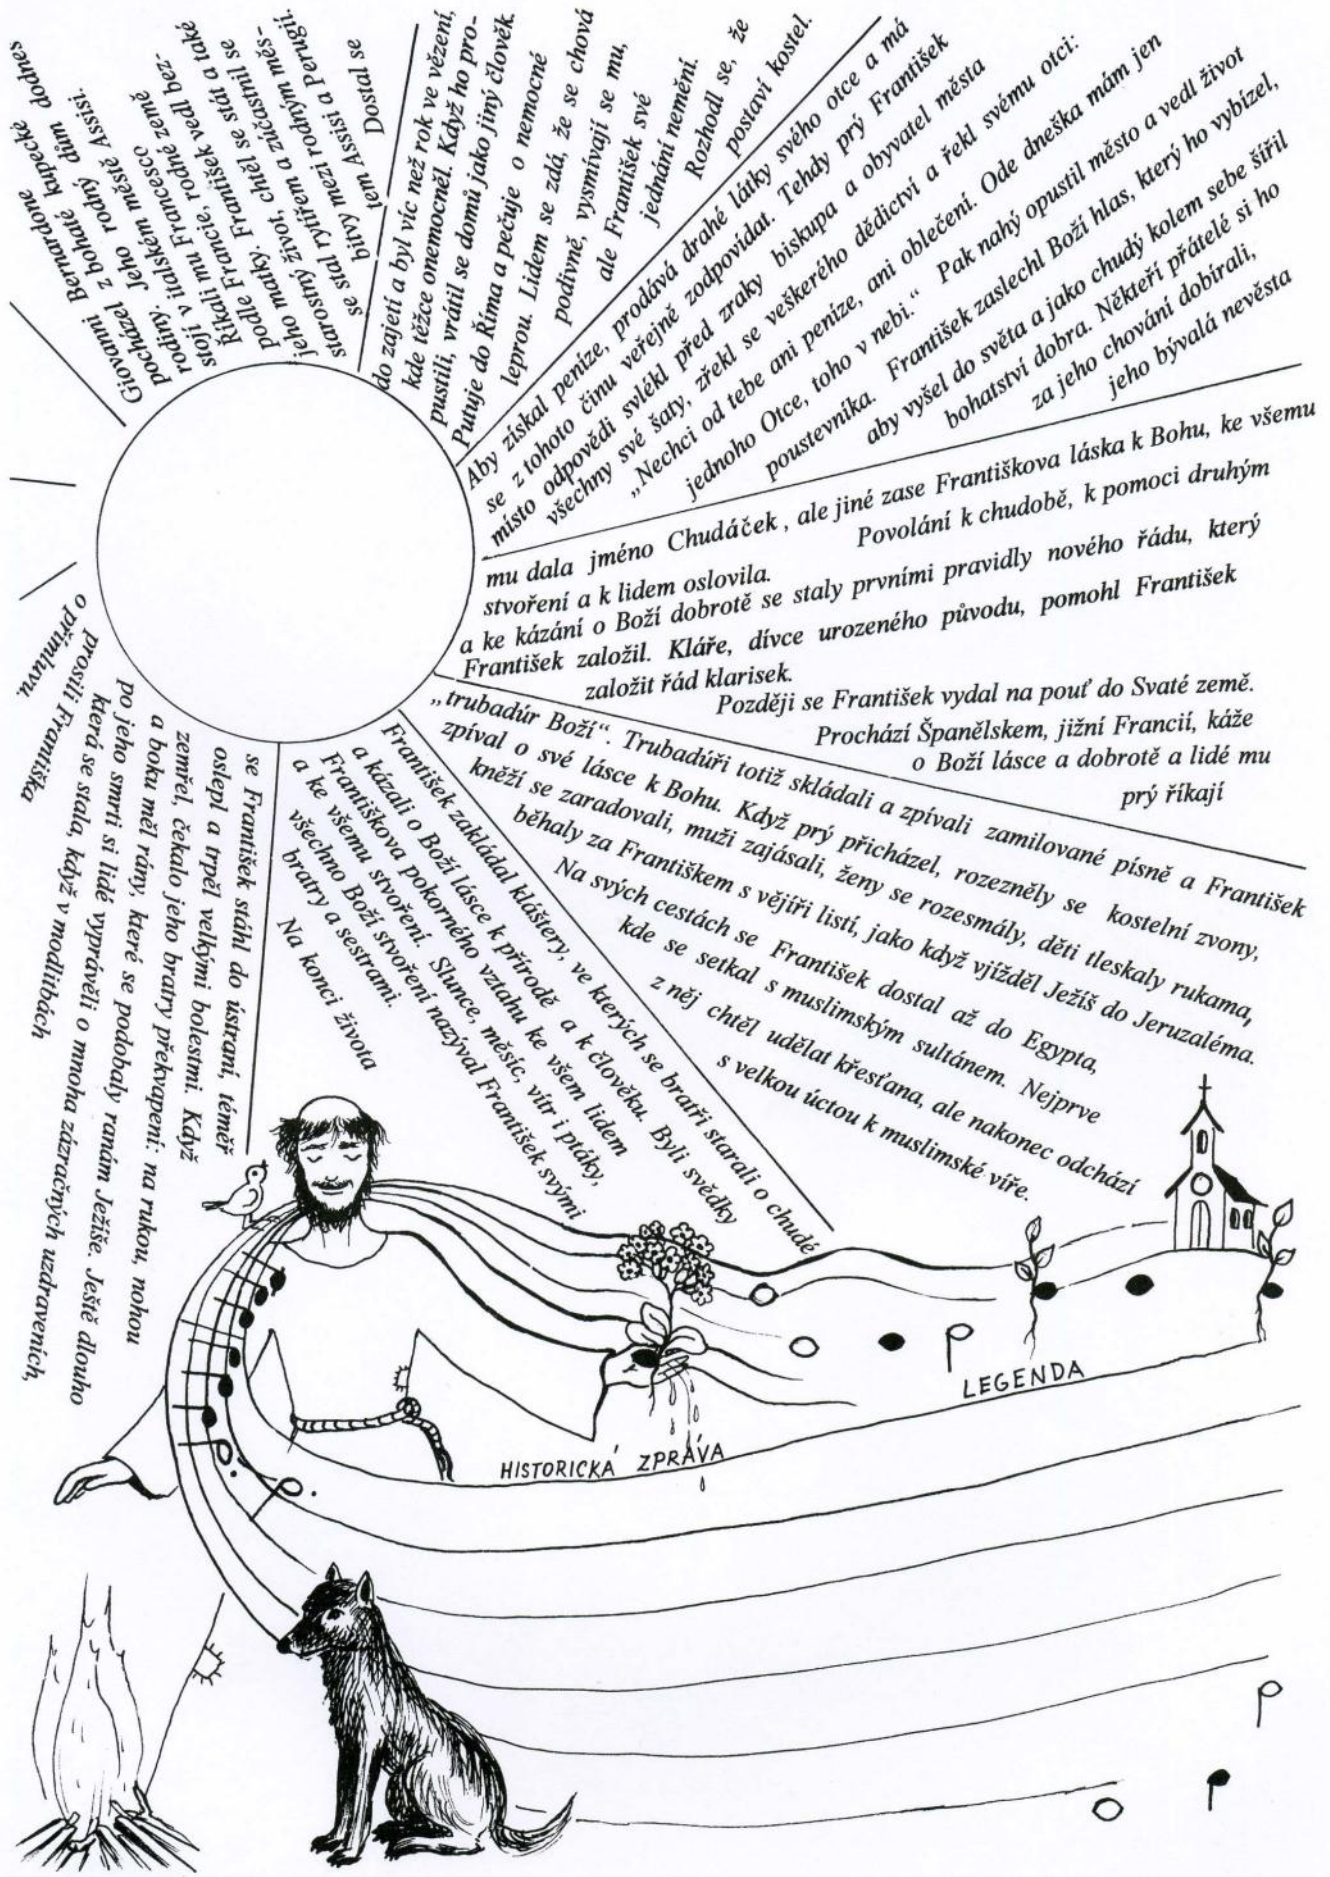 Giovanni Bernardone
pocházel z bohaté kupecké
rodiny. Jeho rodný dům dodnes
stojí v italském městě Assisi.
Říkali mu Francesco
podle Francie, rodné země
jeho matky. František vedl bez-
starostný život, chtěl se stát a také
se stal rytířem a zúčastnil se
bitvy mezi rodným měs-
tem Assisi a Perugií.
Dostal se
do zajetí a byl víc než rok ve vězení,
kde těžce onemocněl. Když ho pro-
pustili, vrátil se domů jako jiný člověk.
Putuje do Říma a pečuje o nemocné
leprou. Lidem se zdá, že se chová
podivně, vysmívají se mu,
ale František své
jednání nemění.
Rozhodl se, že
postaví kostel.
Aby získal peníze, prodává drahé látky svého otce a má
se z tohoto činu veřejně zodpovídat. Tehdy prý František
místo odpovědi svlékl před zraky biskupa a obyvatel města
všechny své šaty, zřekl se veškerého dědictví a řekl svému otci:
„Nechci od tebe ani peníze, ani oblečení. Ode dneška mám jen
jednoho Otce, toho v nebi.“ Pak nahý opustil město a vedl život
poustevníka. František zaslechl Boží hlas, který ho vybízel,
aby vyšel do světa a jako chudý kolem sebe šířil
bohatství dobra. Někteří přátelé si ho
za jeho chování dobírali,
jeho bývalá nevěsta
mu dala jméno Chudáček, ale jiné zase Františkova láska k Bohu, ke všemu
stvoření a k lidem oslovila.
Povolání k chudobě, k pomoci druhým
a ke kázání o Boží dobrotě se staly prvními pravidly nového řádu, který
František založil. Kláře, dívce urozeného původu, pomohl František
založit řád klarisek.
Později se František vydal na pouť do Svaté země.
Prochází Španělskem, jižní Francií, káže
o Boží lásce a dobrotě a lidé mu
prý říkají
„trubadúr Boží“. Trubadúři totiž skládali a zpívali zamilované písně a František
zpíval o své lásce k Bohu. Když prý přicházel, rozezněly se kostelní zvony,
kněží se zaradovali, muži zajásali, ženy se rozesmály, děti tleskaly rukama,
běhaly za Františkem s vějíři listí, jako když vjížděl Ježíš do Jeruzaléma.
Na svých cestách se František dostal až do Egypta,
kde se setkal s muslimským sultánem. Nejprve
z něj chtěl udělat křesťana, ale nakonec odchází
s velkou úctou k muslimské víře.
František zakládal kláštery, ve kterých se bratři starali o chudé
a kázali o Boží lásce k přírodě a k člověku. Byli svědky
Františkova pokorného vztahu ke všem lidem
a ke všemu stvoření. Slunce, měsíc, vítr i ptáky,
všechno Boží stvoření nazýval František svými
bratry a sestrami.
Na konci života
se František stáhl do ústraní, téměř
oslepl a trpěl velkými bolestmi. Když
zemřel, čekalo jeho bratry překvapení: na rukou, nohou
a boku měl rány, které se podobaly ranám Ježíše. Ještě dlouho
po jeho smrti si lidé vyprávěli o mnoha zázračných uzdraveních,
která se stala, když v modlitbách
prosili Františka
o přímluvu.
LEGENDA
HISTORICKÁ ZPRÁVA